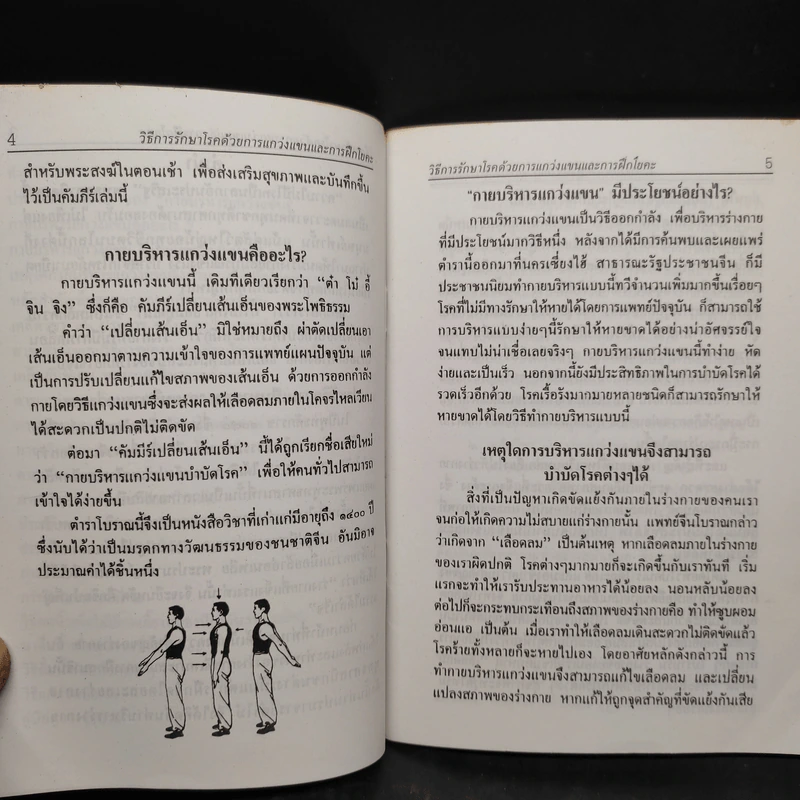 4 วิธีการรักษาโรคด้วยการแกว่งแขนและการฝึกโยคะ
สำหรับพระสงฆ์ในตอนเช้า เพื่อส่งเสริมสุขภาพและบันทึกขึ้น
ไว้เป็นคัมภีร์เล่มนี้
กายบริหารแกว่งแขนคืออะไร?
กายบริหารแกว่งแขนนี้ เดิมทีเดียวเรียกว่า “ต๋า โม๋ อี้
จิน จิง” ซึ่งก็คือ คัมภีร์เปลี่ยนเส้นเอ็นของพระโพธิธรรม
คำว่า “เปลี่ยนเส้นเอ็น” มิใช่หมายถึง ผ่าตัดเปลี่ยนเอา
เส้นเอ็นออกมาตามความเข้าใจของการแพทย์แผนปัจจุบัน แต่
เป็นการปรับเปลี่ยนแก้ไขสภาพของเส้นเอ็น ด้วยการออกกำลัง
กายโดยวิธีแกว่งแขนซึ่งจะส่งผลให้เลือดลมภายในโคจรไหลเวียน
ได้สะดวกเป็นปกติไม่ติดขัด
ต่อมา “คัมมีร์เปลี่ยนเส้นเอ็น” นี้ได้ถูกเรียกชื่อเสียใหม่
ว่า “กายบริหารแกว่งแขนบำบัดโรค” เพื่อให้คนทั่วไปสามารถ
เข้าใจได้ง่ายขึ้น
ตำราโบราณนี้จึงเป็นหนังสือวิชาที่เก่าแก่มีอายุถึง ๑๔๐๐ ปี
ซึ่งนับได้ว่าเป็นมรดกทางวัฒนธรรมของชนชาติจีน อันมิอาจ
ประมาณค่าได้ชิ้นหนึ่ง
วิธีการรักษาโรคด้วยการแกว่งแขนและการฝึกโยคะ 5
“กายบริหารแกว่งแขน” มีประโยชน์อย่างไร?
กายบริหารแกว่งแขนเป็นวิธีออกกำลัง เพื่อบริหารร่างกาย
ที่มีประโยชน์มากวิธีหนึ่ง หลังจากได้มีการค้นพบและเผยแพร่
ตำรานี้ออกมาที่นครเซี่ยงไฮ้ สาธารณะรัฐประชาชนจีน ก็มี
ประชาชนนิยมทำกายบริหารแบบนี้ทวีจำนวนเพิ่มมากขึ้นเรื่อยๆ
โรคที่ไม่มีทางรักษาให้หายได้โดยการแพทย์ปัจจุบัน ก็สามารถใช้
การบริหารแบบง่ายๆนี้รักษาให้หายขาดได้อย่างน่าอัศจรรย์ใจ
จนแทบไม่น่าเชื่อเลยจริงๆ กายบริหารแกว่งแขนนี้ทำง่าย หัด
ง่ายและเป็นเร็ว นอกจากนี้ยังมีประสิทธิภาพในการบำบัดโรคได้
รวดเร็วอีกด้วย โรคเรื้อรังมากมายหลายชนิดก็สามารถรักษาให้
หายขาดได้โดยวิธีทำกายบริหารแบบนี้
เหตุใดการบริหารแกว่งแขนจึงสามารถ
บำบัดโรคต่างๆได้
สิ่งที่เป็นปัญหาเกิดขัดแย้งกันภายในร่างกายของคนเรา
จนก่อให้เกิดความไม่สบายแก่ร่างกายนั้น แพทย์จีนโบราณกล่าว
ว่าเกิดจาก “เลือดลม” เป็นต้นเหตุ หากเลือดลมภายในร่างกาย
ของเราผิดปกติ โรคต่างๆมากมายก็จะเกิดขึ้นกับเราทันที เริ่ม
แรกจะทำให้เรารับประทานอาหารได้น้อยลง นอนหลับน้อยลง
ต่อไปก็จะกระทบกระเทือนถึงสภาพของร่างกายคือ ทำให้ซูบผอม
อ่อนแอ เป็นต้น เมื่อเราทำให้เลือดลมเดินสะดวกไม่ติดขัดแล้ว
โรคร้ายทั้งหลายก็จะหายไปเอง โดยอาศัยหลักดังกล่าวนี้ การ
ทำกายบริหารแกว่งแขนจึงสามารถแก้ไขเลือดลม และเปลี่ยน
แปลงสภาพของร่างกาย หากแก้ให้ถูกจุดสำคัญที่ขัดแย้งกันเสีย